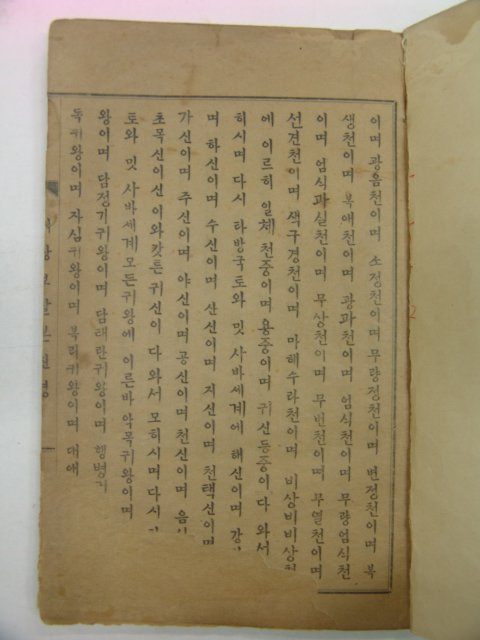 이며 광음천이며 소정천이며 무량정천이며 변정천이며 복
생천이며 복애천이며 광과천이며 엄식천이며 무량엄식천
이며 엄식과실천이며 무상천이며 무번천이며 무열천이며
선견천이며 색구경천이며 마혜수라천이며 비상비비상
에 이르히 일체 천중이며 용중이며 귀신등중이 다 와서
히시며 다시 타방국토와 밋 사바세계에 해신이며 강
며 하신이며 수신이며 산신이며 지신이며 천택신이며
가신이며 주신이며 야신이며 공신이며 천신이며 음
초목신이신 이와갓튼 귀신이 다 와서 모히시며 다시
토와 밋 사바세계 모든귀왕에 이른바 악목귀왕이며
왕이며 담정기귀왕이며 담태란귀왕이며 행병
독귀왕이며 자심귀왕이며 복리귀왕이며 대애
장보살본원경